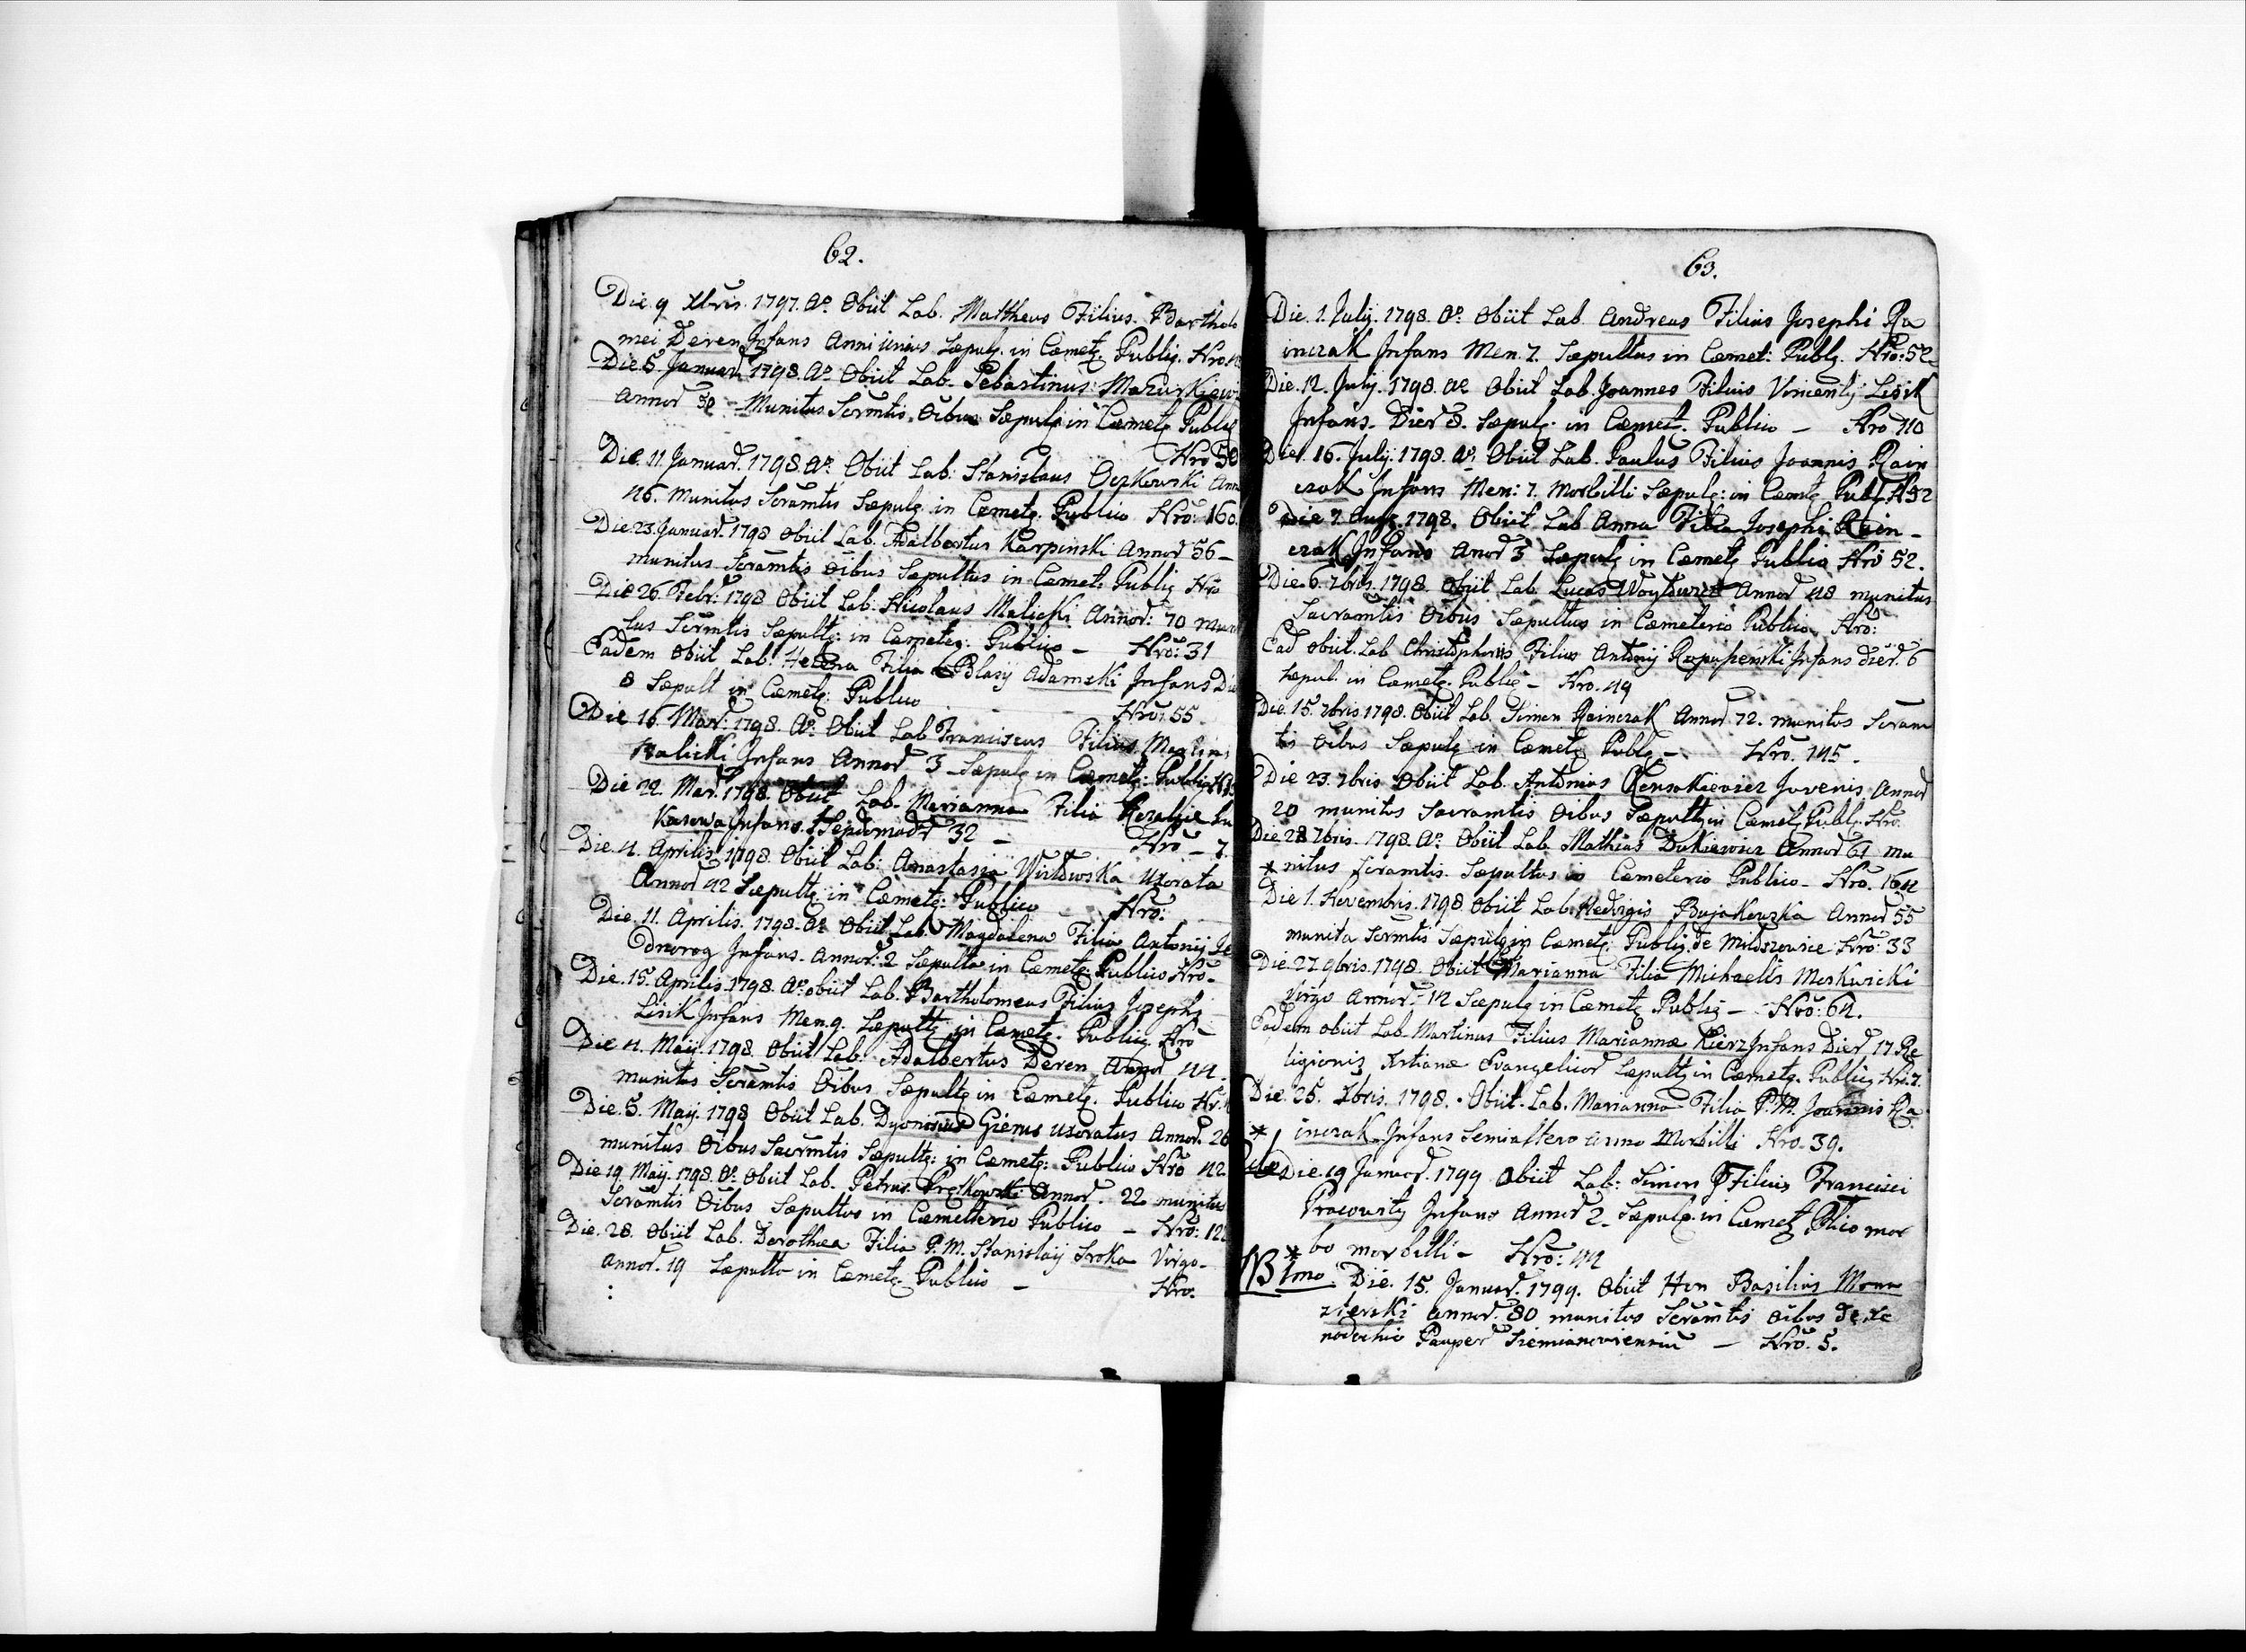 62.
Die 9 Xbris. 1797. Ao. Obiit Lab. Mattheus Filius Bartholo
mei Deren Infans Anni unius Sæpult. in Cæmet. Public. Nro.
Die 5 Januar. 1798. Ao. Obiit Lab. Sebastinus Mazurkiewi
Annor 30 Munitus Scrmtis Oibus Sæpult in Cæmet Public
Nro 50
Die 11. Januar. 1798. Ao. Obiit Lab: Stanislaus Oczkowski Ann
46. munitus Scramtis Sæpult in Cemet. Publico Nro: 160.
Die 23. Januar. 1798 Obiit Lab. Adalbertus Karpinski Annor 56 -
munitus Scramtis Oibus Sæpultus in Cæmet. Public Nro
Die 26. Febr: 1798 Obiit Lab: Nicolaus Malicki Annor: 70 muni
tus Scrmtis Sæpult: in Cæmeter: Publico - Nro: 31
Eadem Obiit Lab: Helena Filia Blasij Adamski Infans Die
8 Sæpult in Cæmet: Publico Nro: 55
Die 16. Mar: 1798. Ao. Obiit Lab Franciscus Filius Martini
Balicki Infans Annor 3 Sæpult in Cæmet: Public
Die 22. Mar. 1798. Obiit Lab. Marianna Filia Rozaliæ Lu
kaowa Infans Sepdomadr 32 - Nro - 7.
Die 4. Aprilis 1798. Obiit Lab: Anastasia Witkowska Uxorata
Annor 42 Sæpult: in Cæmet: Publico Nro:
Die. 11. Aprilis. 1798. Ao Obiit Lab. Magdalena Filia Antonij Je
dnorog Infans. Annor: 2 Sæpulta in Cæmet: Publico Nro.
Die. 15. Aprilis. 1798. Ao. obiit Lab. Bartholomeus Filius Josephi
Lisik Infans Men. 9. Sæpult in Cæmet. Public Nro
Die 4. Maij. 1798. Obiit Lab. Adalbertus Deren Annor 44.
munitus Scramtis Oibus Sæpult in Cæmet. Publico Nr.
Die. 5. Maij. 1798 Obiit Lab. Dyonisius Gierus uxoratus Annor. 26
munitus Oibus Sacrmtis Sæpult: in Cæmet: Publico Nro 42
Die 19. Maij. 1798. Ao. Obiit Lab. Petrus Prętkowski Annor. 22 munitus
Scramtis Oibus Sæpultus in Cæmetterio Publico - Nro: 12
Die. 28. Obiit Lab. Dorothea Filia P. M. Stanislaij Sroka Virgo -
annor. 19 Sæpulta in Cæmet. Publico - Nro.
63.
Die. 1. Julij. 1798. Ao. Obiit Lab. Andreas Filius Josephi Ra
inczak Infans Men. 7. Sæpultus in Cæmet: Publ. Nro: 52
Die. 12. Julij. 1798. Ao Obiit Lab. Joannes Filius Vincentij Lisik
Infans. Dier 8. Sæpul. in Cæmet. Publico - Nro 110
Die. 16. Julij. 1798. Ao. Obiit Lab. Paulus Filius Joannis Rain
czak Infans Men: 7. Morbilli Sæpul: in Cæmt. Publ. N 32
Die 7. Aug. 1798. Obiit Lab Anna Filia Josephi Rain -
czak Infans Anor 3 Sæpul in Cæmet Publico Nro 52.
Die 6. 7bris. 1798. Obiit Lab. Lucas Woytowicz Annor 48 munitus
Sacramtis Oibus Sæpultus in Cæmeterio Publico Nro:
Ead obiit. Lab Christophorus Filius Antonij Infans Dier. 6
Sæpul. in Cæmet. Public - Nro. 49
Die. 15. 7bris. 1798. Obiit Lab. Simon Rainczak Annor. 72. munitus Scram
tis Oibus Sæpult in Cæmet Publ - Nro. 145.
Die 23. 7bris Obiit Lab. Antonius Juvenis Annor
20 munitus Sacramtis Oibus Sæpult in Cæmet Publ. Nro.
Die. 28 7bris. 1798. Ao. Obiit Lab. Mathias Dukiewicz Annor 61 mu
* nitus Scramtis. Sæpultus in Cæmeterio Publico - Nro. 162
Die 1. Novembris. 1798. Obiit Lab. Hedvigis Bujakowska Annor 55
munita Scrmtis Sæpult in Cæmet. Public. de Miloszowice Nro: 33
Die. 27. 9bris. 1798. Obiit Marianna Filia Michaelis Morkwicki
Virgo Annor. 12 Sæpul in Cæmet Public - Nro: 62.
Eadem obiit Lab. Martinus Filius Mariannæ Kierz Infans Dier. 17. Re
ligionis Xrtianæ Evangelicor Sæpult in Cæmet. Public Nro. 7.
Die. 25. Xbris. 1798. Obiit. Lab. Marianna Filia P. M. Joannis Ra
* inczak Infans Semialtero Anno Morbilli Nro. 39.
Die. 19 Januar. 1799 Obiit Lab: Simon Filius Francisci
Pracowity Infans Annor 2. Sæpul. in Cæmet Plico mor
* bo morbilli - Nro: 42
NB 1mo. Die. 15. Januar. 1799. Obiit Hon Basilius Mona
zterski annor. 80 munitus Scramtis Oibus de Xe
nodochio Pauper Siemianoviensiu - Nro. 5.